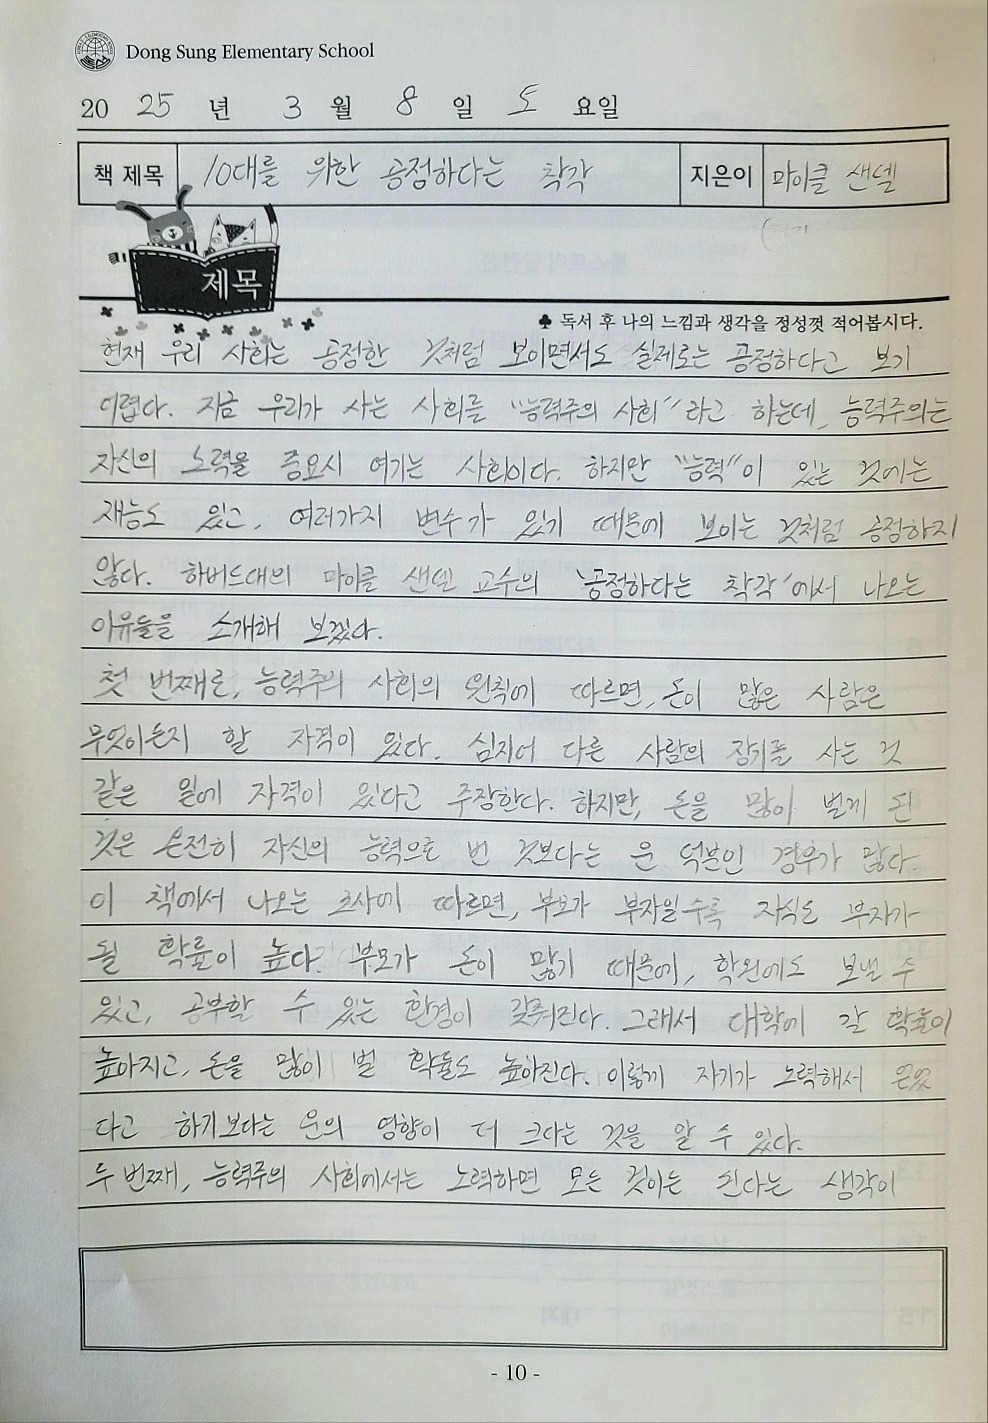 Dong Sung Elementary School
20 25 년 3 월 8 일 토 요일
책 제목 10대를 위한 공정하다는 착각 지은이 마이클 샌델
제목
♣ 독서 후 나의 느낌과 생각을 정성껏 적어봅시다.
현재 우리 사회는 공정한 것처럼 보이면서도 실제로는 공정하다고 보기
어렵다. 지금 우리가 사는 사회를 "능력주의 사회"라고 하는데, 능력주의는
자신의 노력을 중요시 여기는 사회이다. 하지만 "능력"이 있는 것에는
재능도 있고, 여러가지 변수가 있기 때문에 보이는 것처럼 공정하지
않다. 하버드대의 마이클 샌델 교수의 '공정하다는 착각'에서 나오는
이유들을 소개해 보겠다.
첫 번째로, 능력주의 사회의 원칙에 따르면, 돈이 많은 사람은
무엇이든지 할 자격이 있다. 심지어 다른 사람의 장기를 사는 것
같은 일에 자격이 있다고 주장한다. 하지만, 돈을 많이 벌게 된
것은 온전히 자신의 능력으로 번 것보다는 운 덕분인 경우가 많다.
이 책에서 나오는 조사에 따르면, 부모가 부자일수록 자식도 부자가
될 확률이 높다. 부모가 돈이 많기 때문에, 학원에도 보낼 수
있고, 공부할 수 있는 환경이 갖춰진다. 그래서 대학에 갈 확률이
높아지고, 돈을 많이 벌 확률도 높아진다. 이렇게 자기가 노력해서 얻었
다고 하기보다는 운의 영향이 더 크다는 것을 알 수 있다.
두번째, 능력주의 사회에서는 노력하면 모든 것이든 된다는 생각이
- 10 -